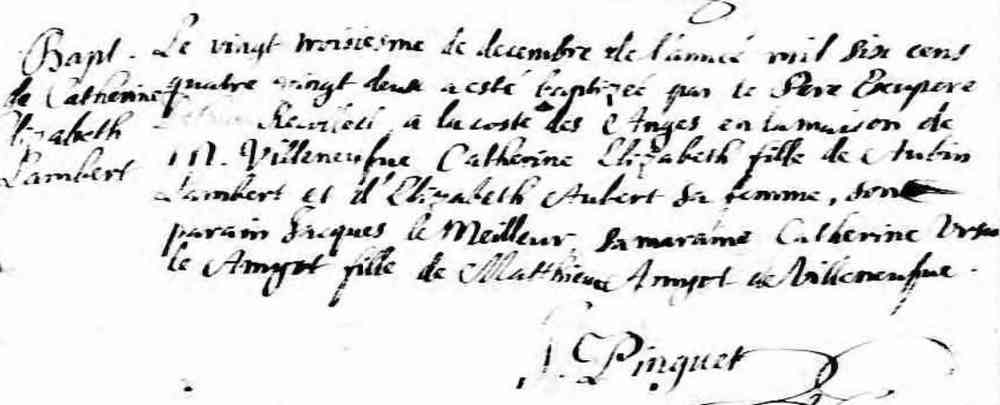 Bapt.
de Catherine
Elizabeth
Lambert
Le vingt troisiesme de decembre de l'année mil six cens
quatre vingt deux a esté baptizée par le Pere Exupere
Recollect a la coste des Anges en la maison de
M. Villeneufue Catherine Elizabeth fille de Aubin
Lambert et d'Elizabeth Aubert sa femme, son
parain Jacques le Meilleur, sa maraine Catherine Ursu
le Amyot fille de Matthieu Amyot de Villeneufue.
Pinguet